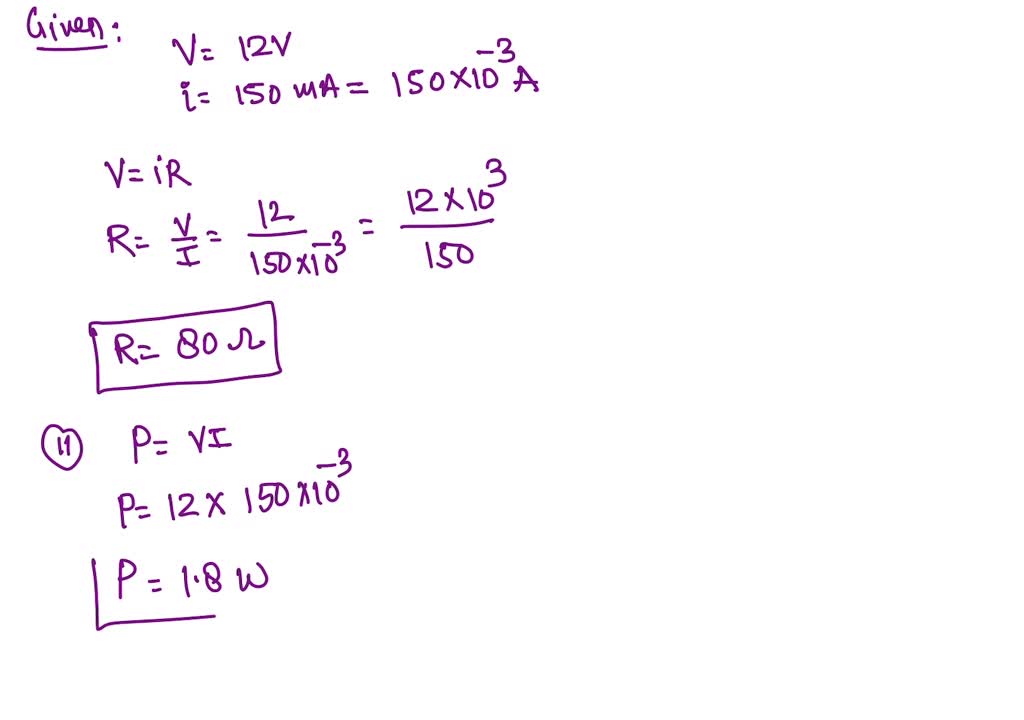 Given:
V= 12V
i= 150 mA = 150×10⁻³ A
V= iR
R= V/I = 12/150×10⁻³ = 12×10³/150
R= 80 Ω
(ii) P= VI
P= 12 × 150×10⁻³
P = 1.8 W